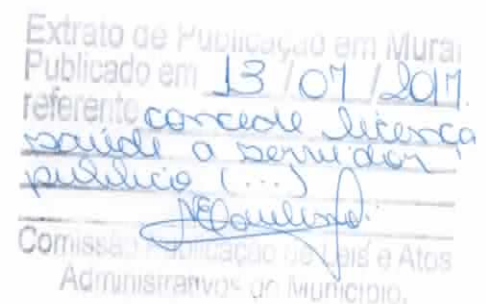 Extrato de Publicação em Mural
Publicado em 13/07/2017.
referente concede licença
saúde a servidor
publico (...)
Comissão Publicação de Leis e Atos
Administrativos do Município.